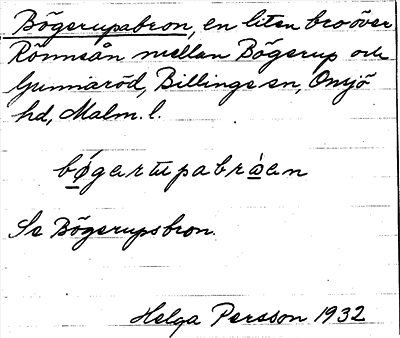 Bögerupabron, en liten bro över
Rönneån mellan Bögerup och
Gunnaröd, Billinge sn, Onsjö
hd, Malm. l.
bø̀garupabròan
Se Bögerupsbron.
Helga Persson 1932